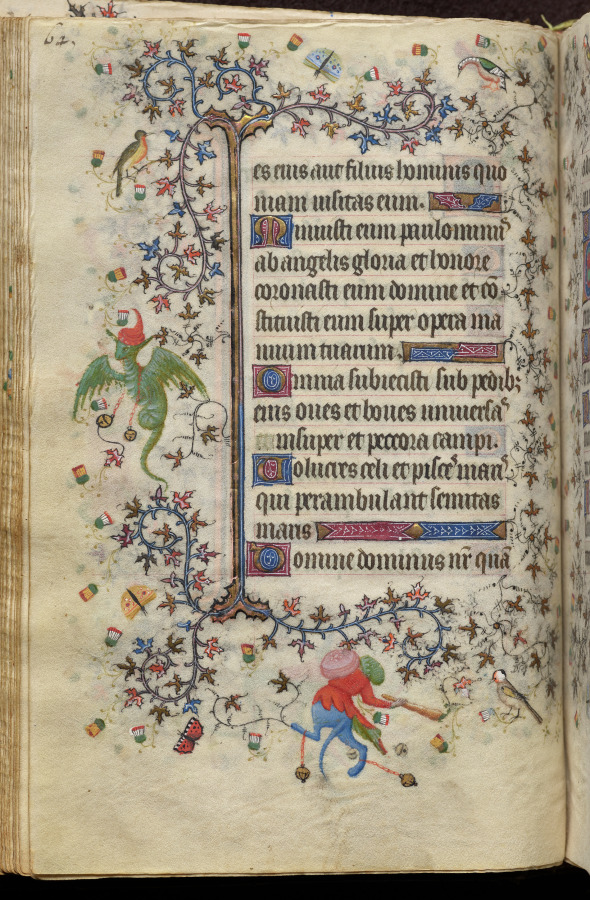 62.
es eius aut filius hominis quo
niam uisitas eum.
Minuisti eum paulominus
ab angelis gloria et honore
coronasti eum domine et co
stituisti eum super opera ma
nuum tuarum.
Omnia subiecisti sub pedib;
eius oues et boues uniuersas
insuper et peccora campi.
Uolucres celi et pisces maris
qui perambulant semitas
maris
Domine dominus nr̄ quā